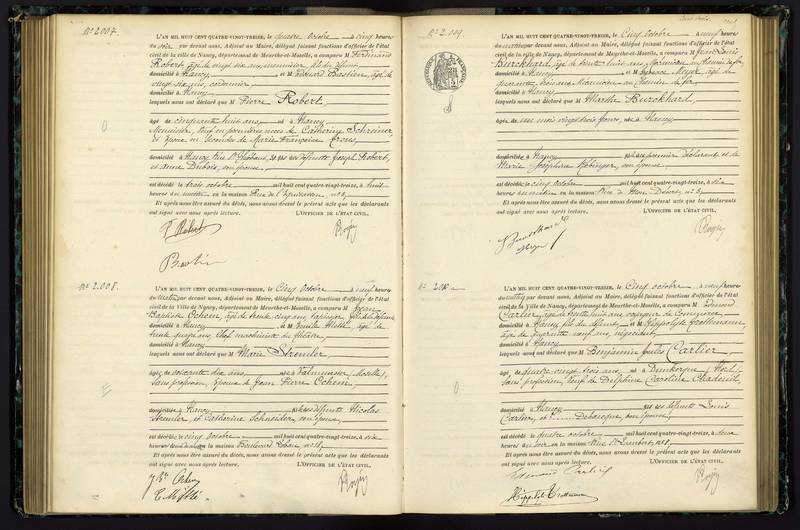 N° 2007.
L'AN MIL HUIT CENT QUATRE-VINGT-TREIZE, le quatre Octobre à cinq heures
du soir par devant nous, Adjoint au Maire, délégué faisant fonctions d'officier de l'état
civil de la Ville de Nancy, département de Meurthe-et-Moselle, a comparu M Ferdinand
Robert, âgé de vingt six ans, menuisier, fils du défunt,
domicilié à Nancy et M Edouard Bastien, âgé de
vingt six ans, cordonnier,
domicilié à Nancy
lesquels nous ont déclaré que M Pierre Robert,
âgé de cinquante huit ans, né à Nancy
Menuisier, veuf en premières noces de Catherine Schreiner,
et époux en secondes de Marie Françoise
domicilié à Nancy, Rue St 30, fils des défunts Joseph Robert,
et Anne Dubois, son épouse,
est décédé le trois octobre mil huit cent quatre-vingt-treize, à huit
heures du en la maison Rue de
Et après nous être assuré du décès, nous avons dressé le présent acte que les déclarants
ont signé avec nous après lecture. L'OFFICIER DE L'ÉTAT CIVIL,
F. Robert
Bastien
N° 2.008.
L'AN MIL HUIT CENT QUATRE-VINGT-TREIZE, le Cinq Octobre à neuf heures
du matin par devant nous, Adjoint au Maire, délégué faisant fonctions d'officier de l'état
civil de la Ville de Nancy, département de Meurthe-et-Moselle, a comparu M Jean
Baptiste Ochem, âgé de trente cinq ans, tapissier, fils de la défunte
domicilié à Nancy et M Emile âgé de
trente ans, Chef machiniste du théâtre,
domicilié à Nancy
lesquels nous ont déclaré que M Marie Stremler,
âgée de soixante dix ans, née à Valmunster (Moselle),
sans profession, épouse de Jean Pierre Ochem,
domiciliée à Nancy fille des défunts Nicolas
Stremler, et Catherine Schneider, son épouse,
est décédée le cinq octobre mil huit cent quatre-vingt-treize, à six
heures en la maison Boulevard Lobau, n° 18,
Et après nous être assuré du décès, nous avons dressé le présent acte que les déclarants
ont signé avec nous après lecture. L'OFFICIER DE L'ÉTAT CIVIL,
N° 2.009.
L'AN MIL HUIT CENT QUATRE-VINGT-TREIZE, le Cinq Octobre à neuf heures
du matin par devant nous, Adjoint au Maire, délégué faisant fonctions d'officier de l'état
civil de la Ville de Nancy, département de Meurthe-et-Moselle, a comparu M Louis
Burckhard, âgé de trente huit ans, Mécanicien au Chemin de fer,
domicilié à Nancy et M Meyer, âgé de
quarante ans, Mécanicien au Chemin de fer,
domicilié à Nancy
lesquels nous ont déclaré que M Marthe Burckhard,
âgée de mois vingt trois jours, née à Nancy
domiciliée à Nancy fille du premier déclarant, et de
Marie Joséphine son épouse,
est décédée le cinq Octobre mil huit cent quatre-vingt-treize, à six
heures du matin en la maison Rue de
Et après nous être assuré du décès, nous avons dressé le présent acte que les déclarants
ont signé avec nous après lecture. L'OFFICIER DE L'ÉTAT CIVIL,
L'AN MIL HUIT CENT QUATRE-VINGT-TREIZE, le Cinq octobre à neuf heures
du matin par devant nous, Adjoint au Maire, délégué faisant fonctions d'officier de l'état
civil de la Ville de Nancy, département de Meurthe-et-Moselle, a comparu M Edmond
Cartier, âgé de trente huit ans, voyageur de Commerce,
domicilié à Nancy, fils du défunt, et M Hippolyte
âgé de ans, négociant,
domicilié à Nancy
lesquels nous ont déclaré que M Benjamin Jules Cartier,
âgé de quatre vingt trois ans, né à Dunkerque (Nord),
sans profession, veuf de Delphine Caroline
domicilié à Nancy fils des défunts Louis
Cartier, et Debacque, son épouse,
est décédé le quatre octobre mil huit cent quatre-vingt-treize, à
heures du soir en la maison Rue St Lambert, n°
Et après nous être assuré du décès, nous avons dressé le présent acte que les déclarants
ont signé avec nous après lecture. L'OFFICIER DE L'ÉTAT CIVIL,
Edmond Cartier